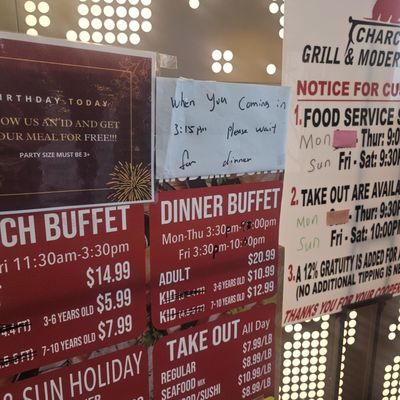 BIRTHDAY TODAY
OW US AN ID AND GET
OUR MEAL FOR FREE!!!
PARTY SIZE MUST BE 3+
When You Coming in
3:15pm Please wait
for dinner
CH BUFFET
ri 11:30am-3:30pm
$14.99
$5.99
3-6 YEARS OLD
$7.99
7-10 YEARS OLD
& SUN HOLIDAY
DINNER BUFFET
Mon-Thu 3:30pm-
Fri 3:30pm-10:
ADULT $20.99
KID 3-6 YEARS OLD $10.99
KID 7-10 YEARS OLD $12.99
TAKE OUT All Day
REGULAR $7.99/LB
SEAFOOD MIX $8.99/LB
FOOD/SUSHI $10.99/LB
$8.99/LB
CHARC
GRILL & MODER
NOTICE FOR CU
1. FOOD SERVICE S
Mon Thur: 9:0
Sun Fri - Sat: 9:30P
2. TAKE OUT ARE AVAILA
Mon - Thur: 9:30P
Sun Fri - Sat: 10:00P
3. A 12% GRATUITY IS ADDED FOR A
(NO ADDITIONAL TIPPING IS NE
THANKS YOU FOR YOUR COOPER